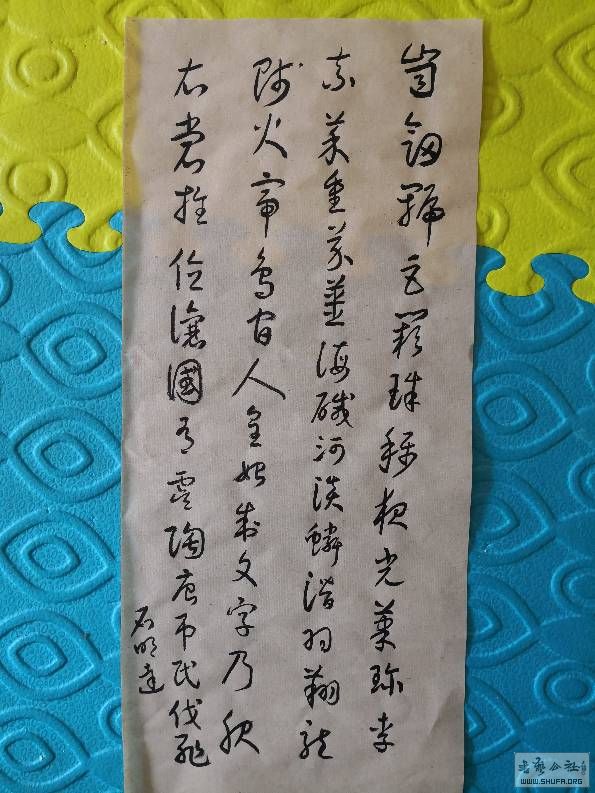 崗劍號巨闕珠稱夜光菓珍李
柰菜重芥薑海鹹河淡鱗潛羽翔龍
師火帝鳥官人皇始制文字乃服
衣裳推位讓國有虞陶唐吊民伐罪
石明達
书艺公社
WWW.SHUFA.ORG